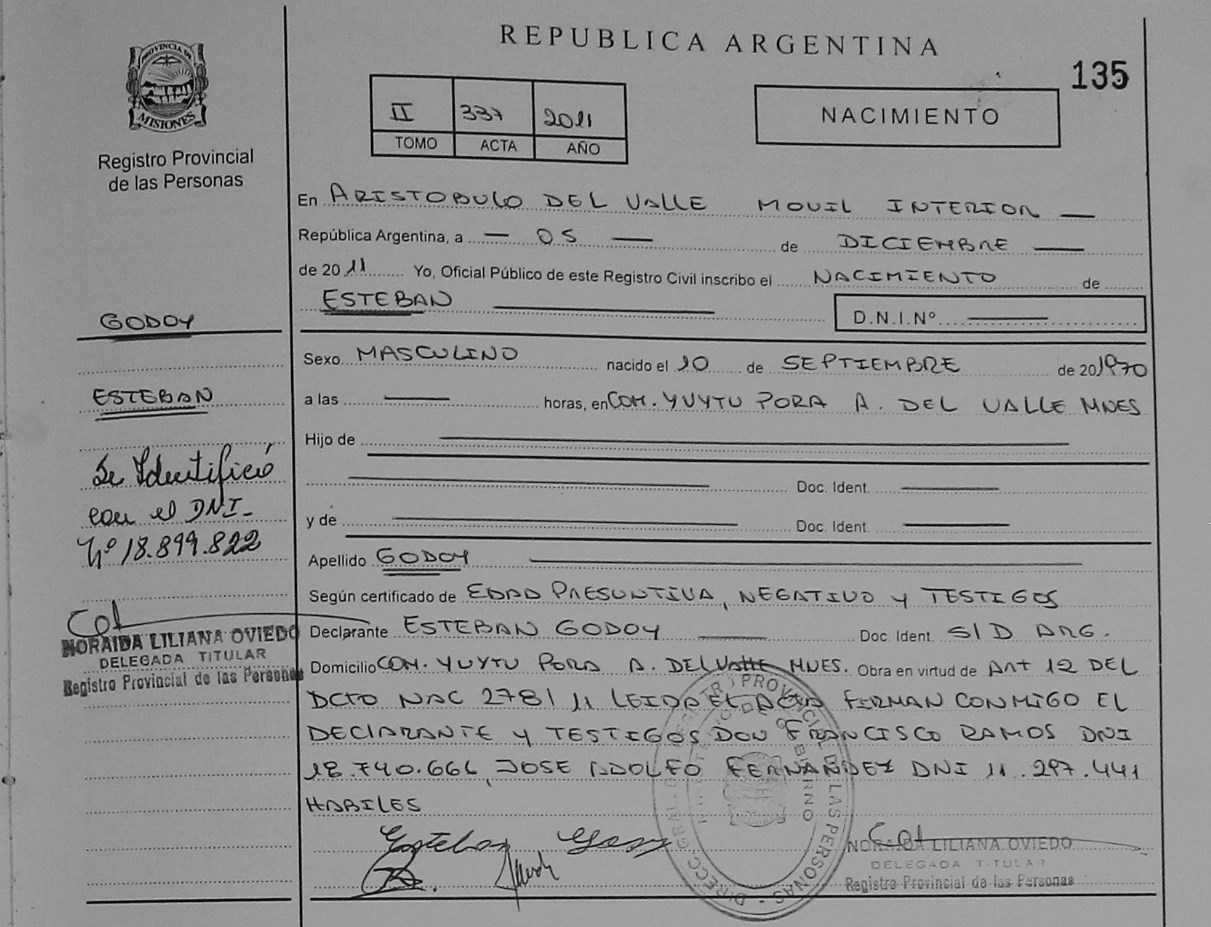 REPUBLICA ARGENTINA
135
PROVINCIA DE
MISIONES
Registro Provincial
de las Personas
II 337 2011
TOMO ACTA AÑO
NACIMIENTO
En ARISTOBULO DEL VALLE MOVIL INTERIOR
República Argentina, a 05 de DICIEMBRE
de 2011 Yo, Oficial Público de este Registro Civil inscribo el NACIMIENTO de
ESTEBAN D.N.I.Nº
Sexo MASCULINO nacido el 10 de SEPTIEMBRE de 201970
a las horas, en COM. YUYTU PORA A. DEL VALLE MNES
Hijo de
Doc. Ident.
y de Doc. Ident.
Apellido GODOY
Según certificado de EDAD PRESUNTIVA, NEGATIVO Y TESTIGOS
Declarante ESTEBAN GODOY Doc. Ident. S/D ARG.
Domicilio COM. YUYTU PORA A. DEL VALLE MNES. Obra en virtud de ART 12 DEL
DCTO NAC 278/11 LEIDA EL ACTA FIRMAN CONMIGO EL
DECLARANTE Y TESTIGOS DON FRANCISCO RAMOS DNI
18.740.666, JOSE ADOLFO FERNANDEZ DNI 11.297.441
HABILES
GODOY
ESTEBAN
Se Identificó
con el DNI-
Nº 18.899.822
NORAIDA LILIANA OVIEDO
DELEGADA TITULAR
Registro Provincial de las Personas
Esteban
NORAIDA LILIANA OVIEDO
DELEGADA TITULAR
Registro Provincial de las Personas
DIRECC. GRAL. REGISTRO PROVINCIAL DE LAS PERSONAS